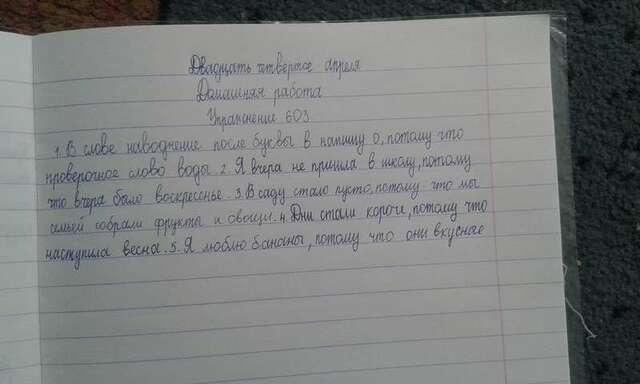 Двадцать четвертое апреля
Домашняя работа
Упражнение 603
1. В слове наводнение после буквы в напишу о, потому что
проверочное слово воды 2. Я вчера не пришла в школу, потому
что вчера было воскреснье. 3. В саду стало пусто, потому что мы
семьёй собрали фрукты и овощи. 4. Дни стали короче, потому что
наступила весна. 5. Я люблю бананы, потому что они вкуснае